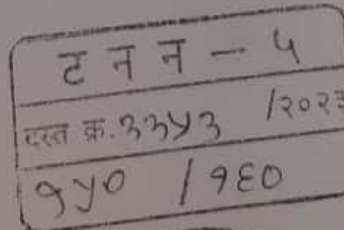 ट न न - ५
दस्त क्र. ३३५३ /२०२३
१५० / १६०